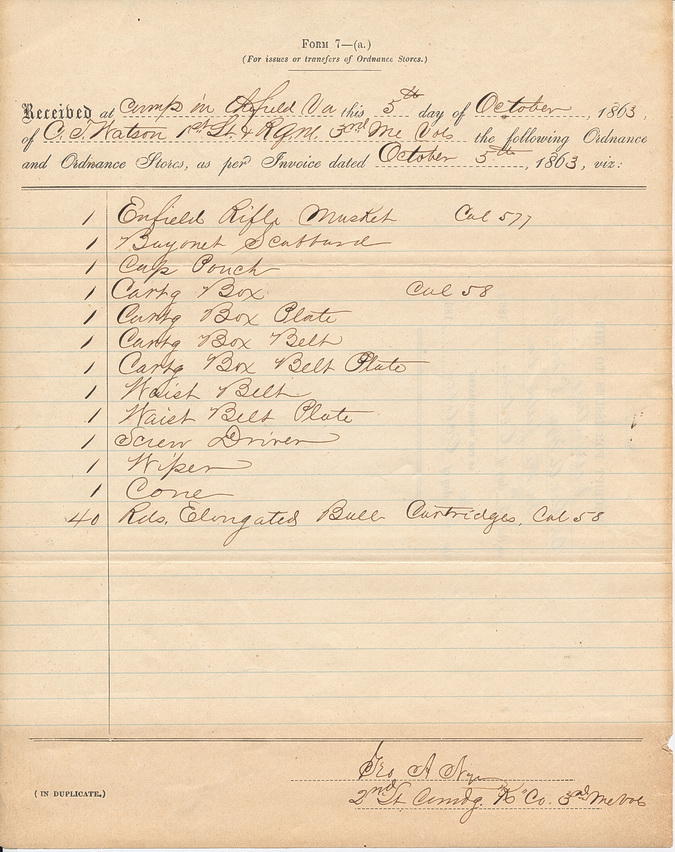 Form 7—(a.)
(For issues or transfers of Ordnance Stores.)
Received at Camp in the field Va this 5th day of October, 1863,
of C. S. Watson 1st Lt. & R.Q.M. 3rd Me Vols the following Ordnance
and Ordnance Stores, as per Invoice dated October 5th, 1863, viz:
1 Enfield Rifle Musket Cal 577
1 Bayonet Scabbard
1 Cap Pouch
1 Cartg Box Cal 58
1 Cartg Box Plate
1 Cartg Box Belt
1 Cartg Box Belt Plate
1 Waist Belt
1 Waist Belt Plate
1 Screw Driver
1 Wiper
1 Cone
40 Rds. Elongated Ball Cartridges, Cal 58
Geo A Nye
2nd Lt Comdg. "K" Co. 3rd Me Vols
(IN DUPLICATE.)